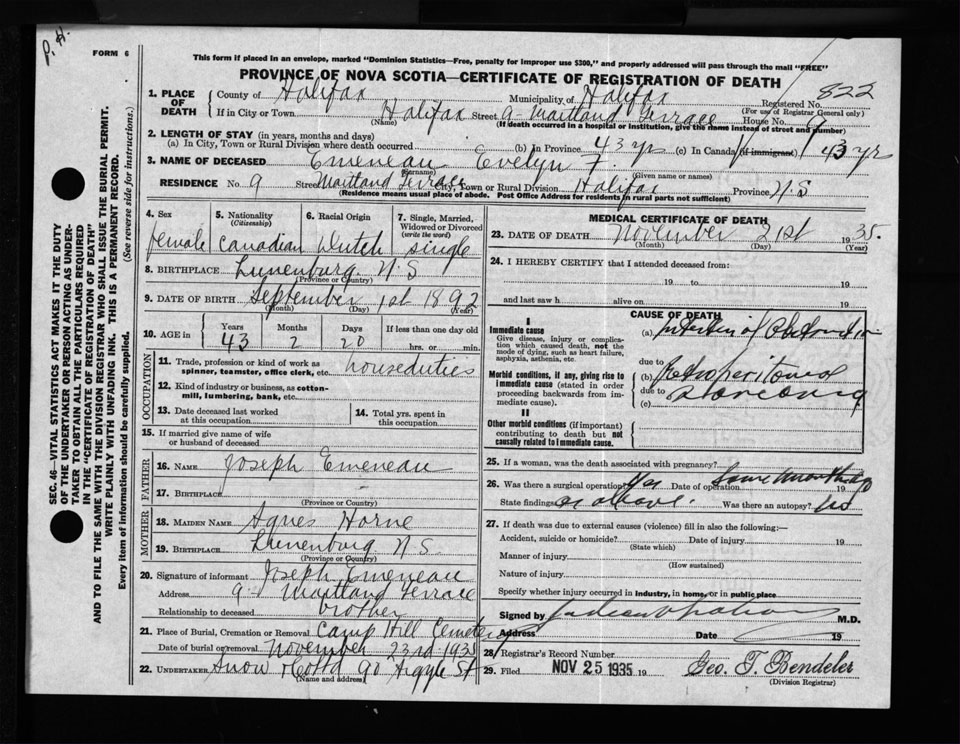 P. H.
FORM 6
This form if placed in an envelope, marked "Dominion Statistics—Free, penalty for improper use $300," and properly addressed will pass through the mail "FREE"
PROVINCE OF NOVA SCOTIA—CERTIFICATE OF REGISTRATION OF DEATH
822
1. PLACE OF DEATH County of Halifax Municipality of Halifax Registered No.
(For use of Registrar General only)
If in City or Town Halifax Street 9 Maitland Terrace House No. 9
(Name) (If death occurred in a hospital or institution, give the name instead of street and number)
2. LENGTH OF STAY (in years, months and days)
(a) In City, Town or Rural Division where death occurred (b) in Province 43 yrs (c) In Canada (if immigrant) 43 yr
3. NAME OF DECEASED Emeneau Evelyn F.
(Surname) (Given name or names)
RESIDENCE No. 9 Street Maitland Terrace City, Town or Rural Division Halifax Province N.S
(Residence means usual place of abode. Post Office Address for residents in rural parts not sufficient)
SEC. 46—VITAL STATISTICS ACT MAKES IT THE DUTY
OF THE UNDERTAKER OR PERSON ACTING AS UNDER-
TAKER TO OBTAIN ALL THE PARTICULARS REQUIRED
IN THE "CERTIFICATE OF REGISTRATION OF DEATH"
AND TO FILE THE SAME WITH THE DIVISION REGISTRAR WHO SHALL ISSUE THE BURIAL PERMIT.
WRITE PLAINLY WITH UNFADING INK. THIS IS A PERMANENT RECORD.
Every item of information should be carefully supplied. (See reverse side for instructions.)
4. Sex 5. Nationality (Citizenship) 6. Racial Origin 7. Single, Married, Widowed or Divorced (write the word)
female Canadian Dutch single
8. BIRTHPLACE Lunenburg N.S
(Province or Country)
9. DATE OF BIRTH September 1st 1892
(Month) (Day) (Year)
10. AGE in Years Months Days If less than one day old
43 2 20 hrs. or min.
OCCUPATION
11. Trade, profession or kind of work as spinner, teamster, office clerk, etc. houseduties
12. Kind of industry or business, as cotton-mill, lumbering, bank, etc.
13. Date deceased last worked at this occupation
14. Total yrs. spent in this occupation
15. If married give name of wife or husband of deceased
FATHER
16. NAME Joseph Emeneau
17. BIRTHPLACE
(Province or Country)
MOTHER
18. MAIDEN NAME Agnes Horne
19. BIRTHPLACE Lunenburg N.S.
(Province or Country)
20. Signature of informant Joseph Emeneau
Address 9 Maitland Terrace
Relationship to deceased brother
21. Place of Burial, Cremation or Removal Camp Hill Cemetery
Date of burial or removal November 23rd 1935
22. UNDERTAKER Snow & Co Ltd 90 Argyle St
(Name and address)
MEDICAL CERTIFICATE OF DEATH
23. DATE OF DEATH November 21st 1935.
(Month) (Day) (Year)
24. I HEREBY CERTIFY that I attended deceased from:
19 to 19
and last saw h alive on 19
CAUSE OF DEATH
I
Immediate cause
Give disease, injury or complication which caused death, not the mode of dying, such as heart failure, asphyxia, asthenia, etc.
(a) Intestinal Obstruction
due to
Morbid conditions, if any, giving rise to immediate cause (stated in order proceeding backwards from immediate cause).
(b) Retroperitoneal
due to
(c) Sarcoma
II
Other morbid conditions (if important) contributing to death but not causally related to immediate cause.
25. If a woman, was the death associated with pregnancy?
26. Was there a surgical operation? Yes Date of operation Some months ago 19
State findings as above. Was there an autopsy? No
27. If death was due to external causes (violence) fill in also the following:—
Accident, suicide or homicide? Date of injury 19
(State which)
Manner of injury
(How sustained)
Nature of injury
Specify whether injury occurred in industry, in home, or in public place
Signed by M.D.
Address Date 19
28. Registrar's Record Number
29. Filed NOV 25 1935 19 Geo. T. Bendeler
(Division Registrar)